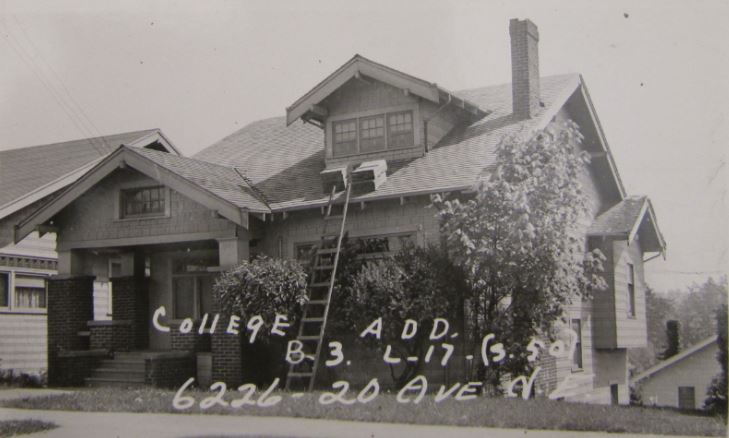 COLLEGE ADD.
B-3. L-17-(S.50')
6226-20 AVE N E